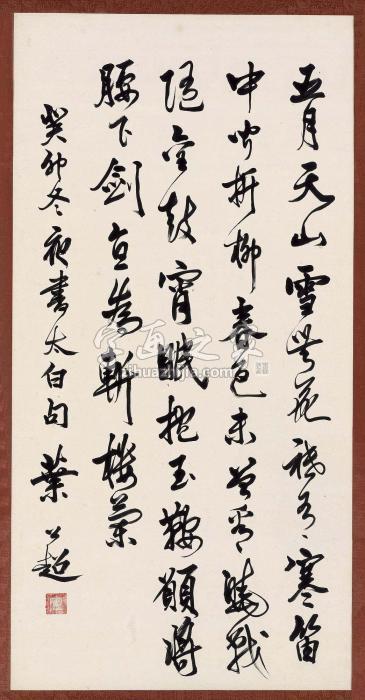 五月天山雪無花祗有寒笛
中聞折柳春色未曾看曉戰
隨金鼓宵眠抱玉鞍願將
腰下劍直為斬樓蘭
癸卯冬夜書太白句 葉公超
字画之家